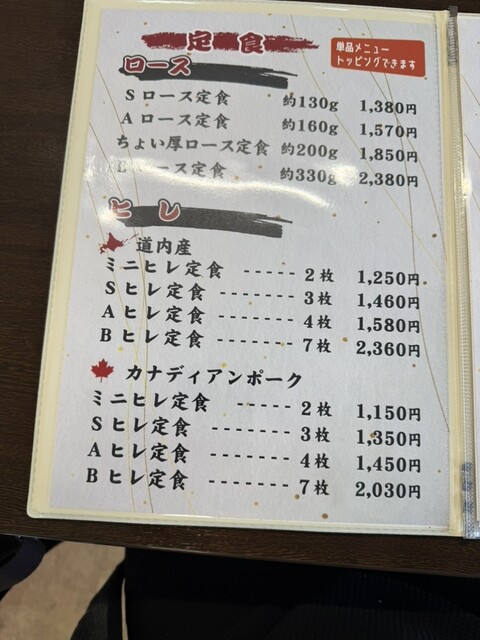 定食
単品メニュー
トッピングできます
ロース
S ロース定食 約130g 1,380円
A ロース定食 約160g 1,570円
ちょい厚ロース定食 約200g 1,850円
ース定食 約330g 2,380円
ヒレ
道内産
ミニヒレ定食 ------ 2枚 1,250円
S ヒレ定食 -------- 3枚 1,460円
A ヒレ定食 -------- 4枚 1,580円
B ヒレ定食 -------- 7枚 2,360円
カナディアンポーク
ミニヒレ定食 ------ 2枚 1,150円
S ヒレ定食 -------- 3枚 1,350円
A ヒレ定食 -------- 4枚 1,450円
B ヒレ定食 -------- 7枚 2,030円